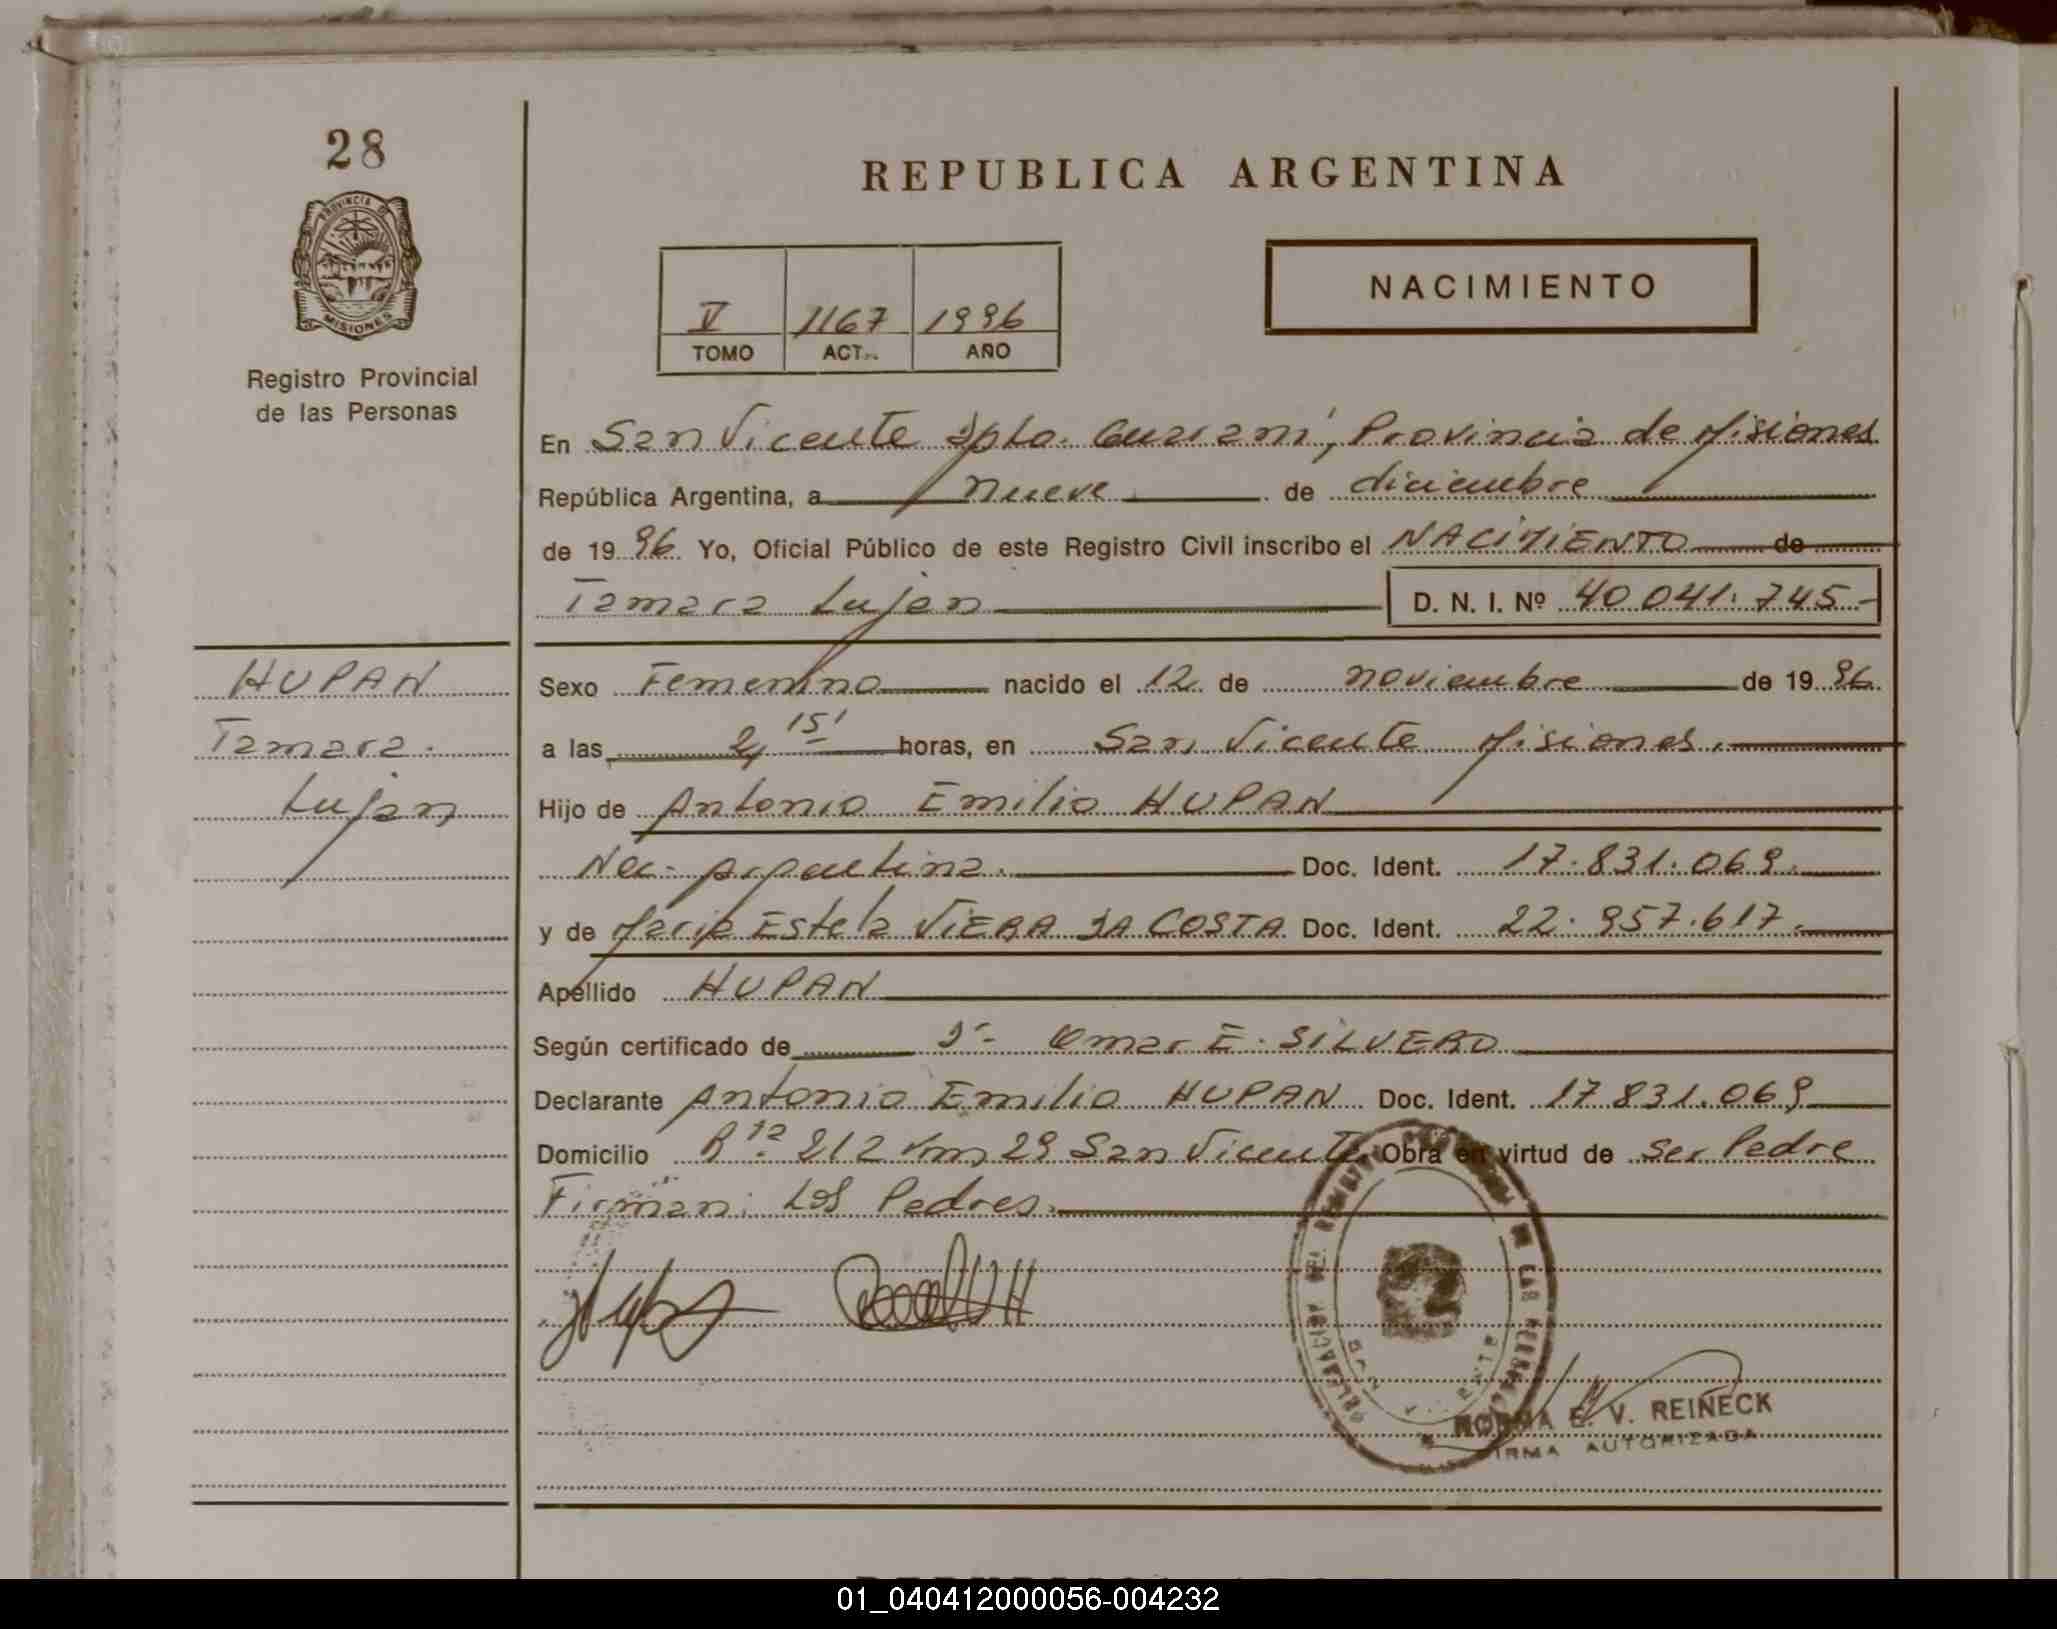 28
REPUBLICA ARGENTINA
PROVINCIA DE
MISIONES
Registro Provincial
de las Personas
NACIMIENTO
V 1167 1996
TOMO ACT. AÑO
En San Vicente Dpto. Guarani, Provincia de Misiones
República Argentina, a nueve de diciembre
de 1996 Yo, Oficial Público de este Registro Civil inscribo el NACIMIENTO de
Tamara Lujan D. N. I. Nº 40 041.745-
HUPAN
Tamara
Lujan
Sexo Femenino nacido el 12 de noviembre de 1996
a las 15' horas, en San Vicente Misiones.
Hijo de Antonio Emilio HUPAN
Nac. argentina. Doc. Ident. 17.831.069.
y de Maria Estela VIERA DA COSTA Doc. Ident. 22.957.617.
Apellido HUPAN
Según certificado de Dr Omar E. SILVERO
Declarante Antonio Emilio HUPAN Doc. Ident. 17 831.069
Domicilio R 212 Km 29 San Vicente Obra en virtud de ser Padre
Firman: Los Padres.
NORMA E. V. REINECK
FIRMA AUTORIZADA
01_040412000056-004232